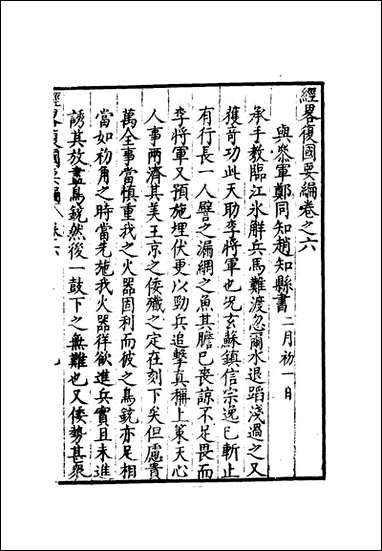 經畧復國要編卷之六
與參軍鄭同知趙知縣書 二月初一日
承手教臨江氷解兵馬難渡忽爾水退蹈淺過之又
獲奇功此天助李將軍也况玄蘇鎮信宗逸已斬止
有行長一人譬之漏網之魚其膽已喪諒不足畏而
李將軍又預施埋伏更以勁兵追擊真稱上策天心
人事兩濟其美王京之倭殱之定在刻下矣但慮貴
萬全事當慎重我之火器固利而彼之鳥銃亦足相
當如初角之時當先施我火器徉欲進兵實且未進
誘其放盡鳥銃然後一鼓下之無難也又倭勢甚衆
經畧復國要編 卷六
九